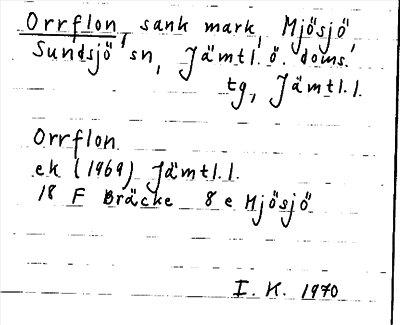 Orrflon, sank mark, Mjösjö,
Sundsjö sn, Jämtl. ö. doms.
tg, Jämtl. l.
Orrflon
ek (1969) Jämtl. l.
18 F Bräcke 8 e Mjösjö
I. K. 1970